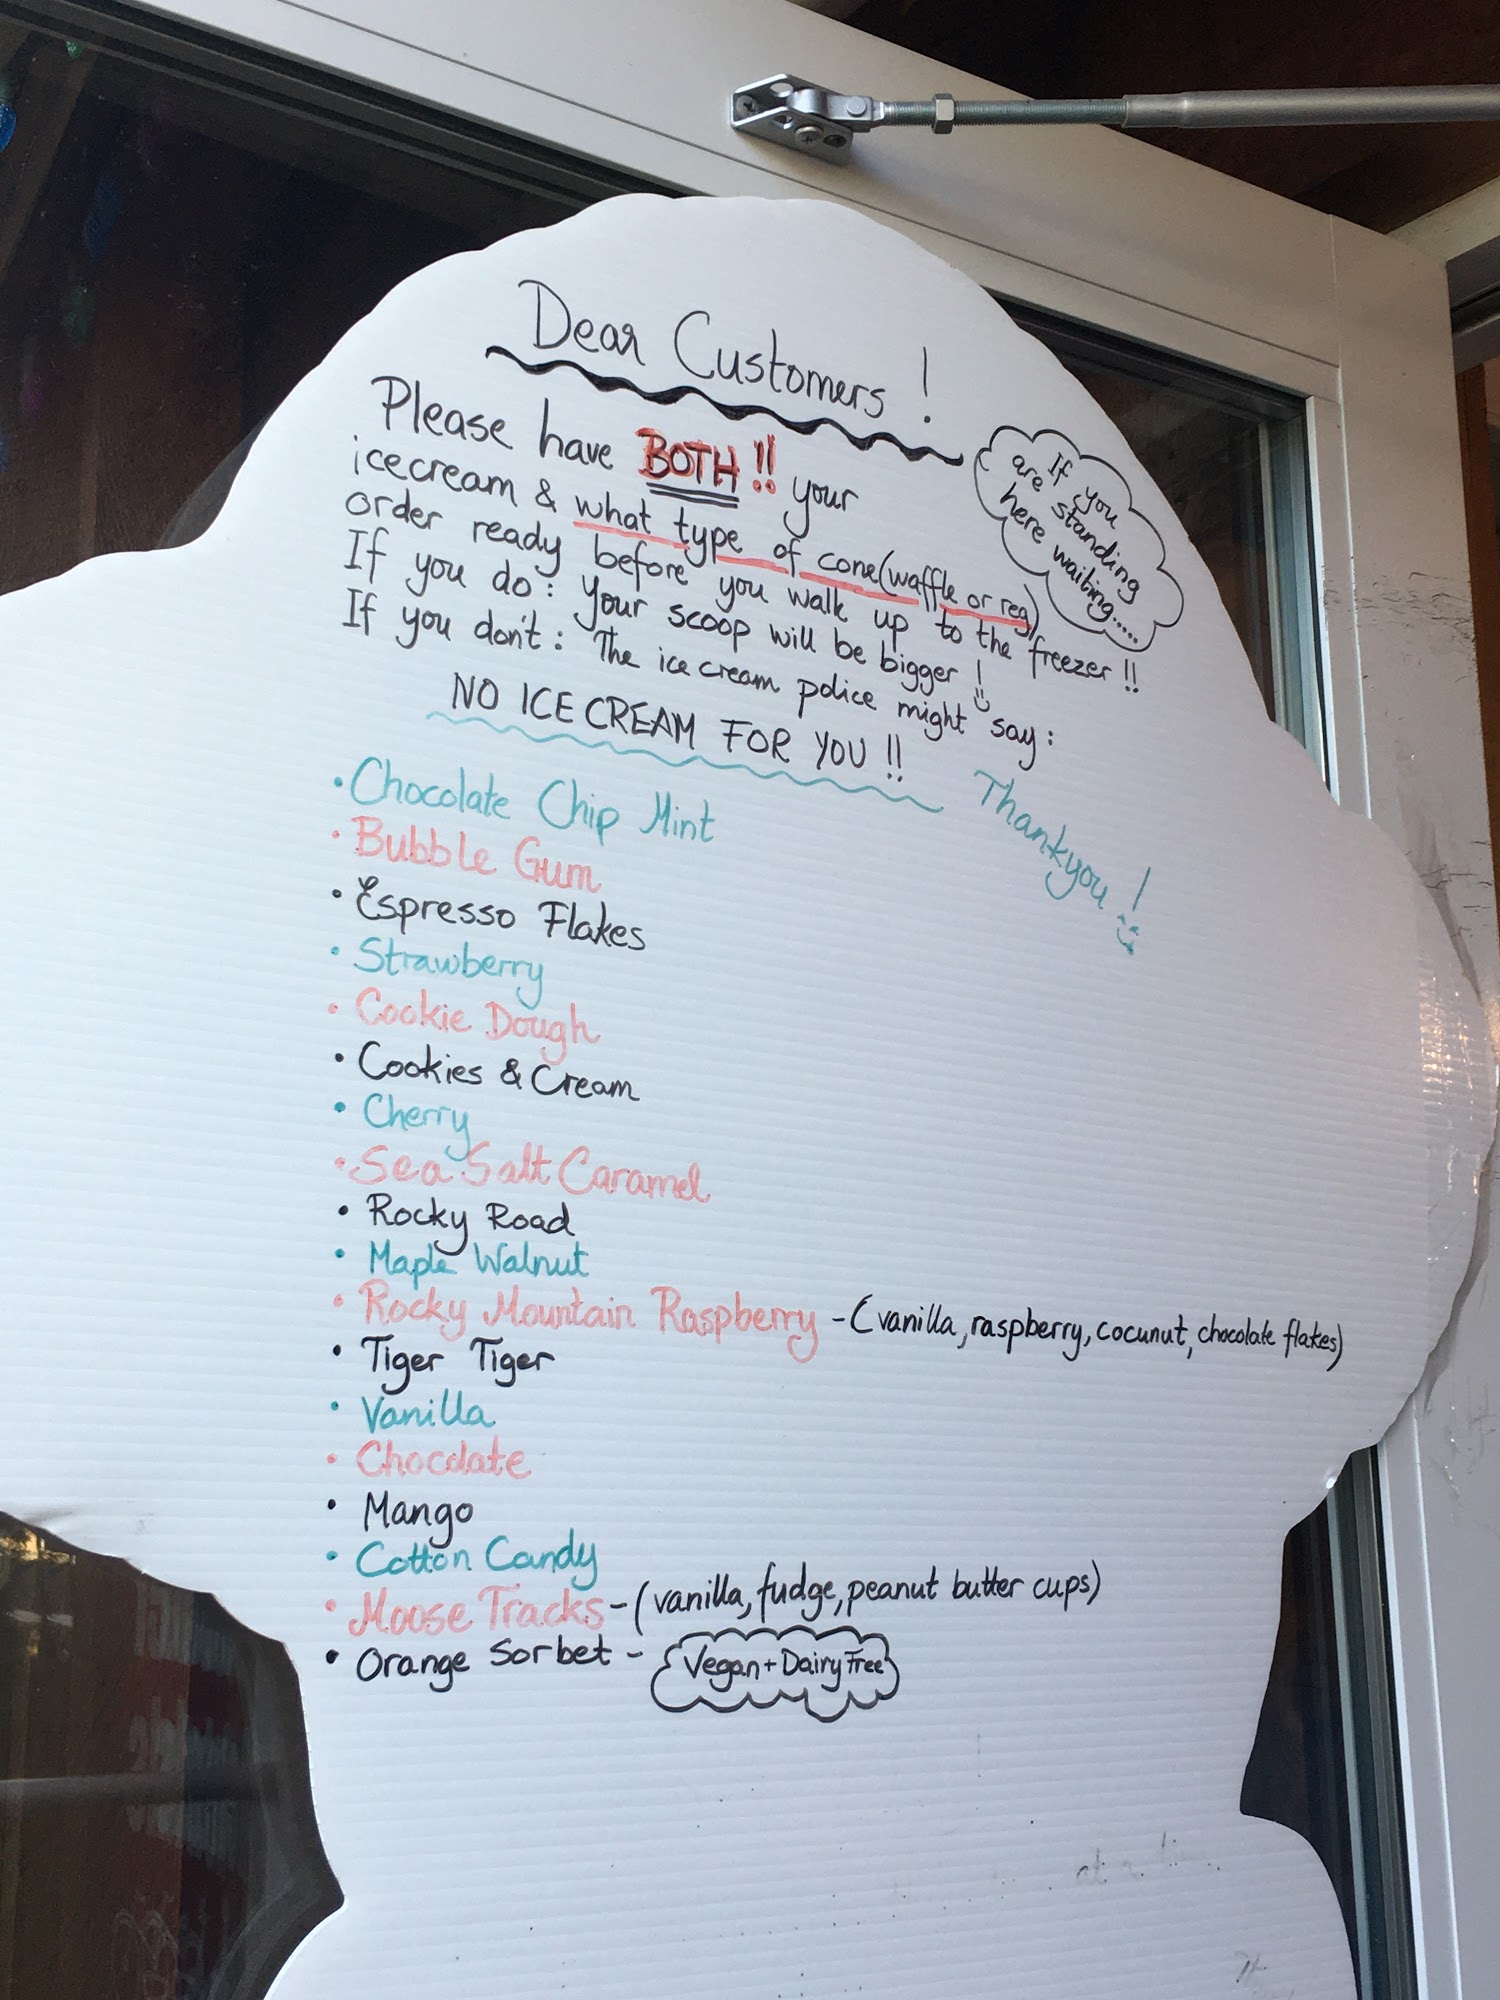 Dear Customers !
Please have BOTH !! your
icecream & what type of cone (waffle or reg)
order ready before you walk up to the freezer !!
If you do : Your scoop will be bigger !
If you don't : The ice cream police might say :
NO ICE CREAM FOR YOU !!
If you
are standing
here waiting.....
Thankyou !
• Chocolate Chip Mint
• Bubble Gum
• Espresso Flakes
• Strawberry
• Cookie Dough
• Cookies & Cream
• Cherry
• Sea Salt Caramel
• Rocky Road
• Maple Walnut
• Rocky Mountain Raspberry - (vanilla, raspberry, cocunut, chocolate flakes)
• Tiger Tiger
• Vanilla
• Chocolate
• Mango
• Cotton Candy
• Moose Tracks - (vanilla, fudge, peanut butter cups)
• Orange Sorbet - Vegan + Dairy Free